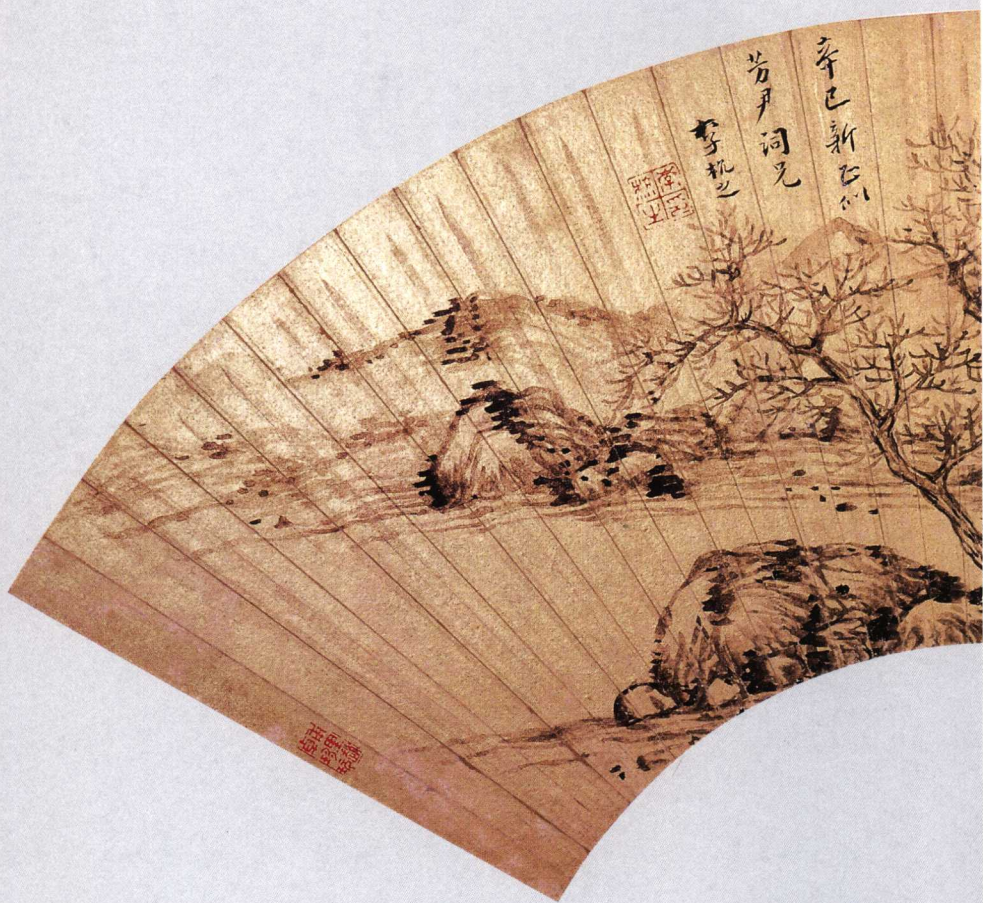 辛巳新正似
芳尹詞兄
李杭之